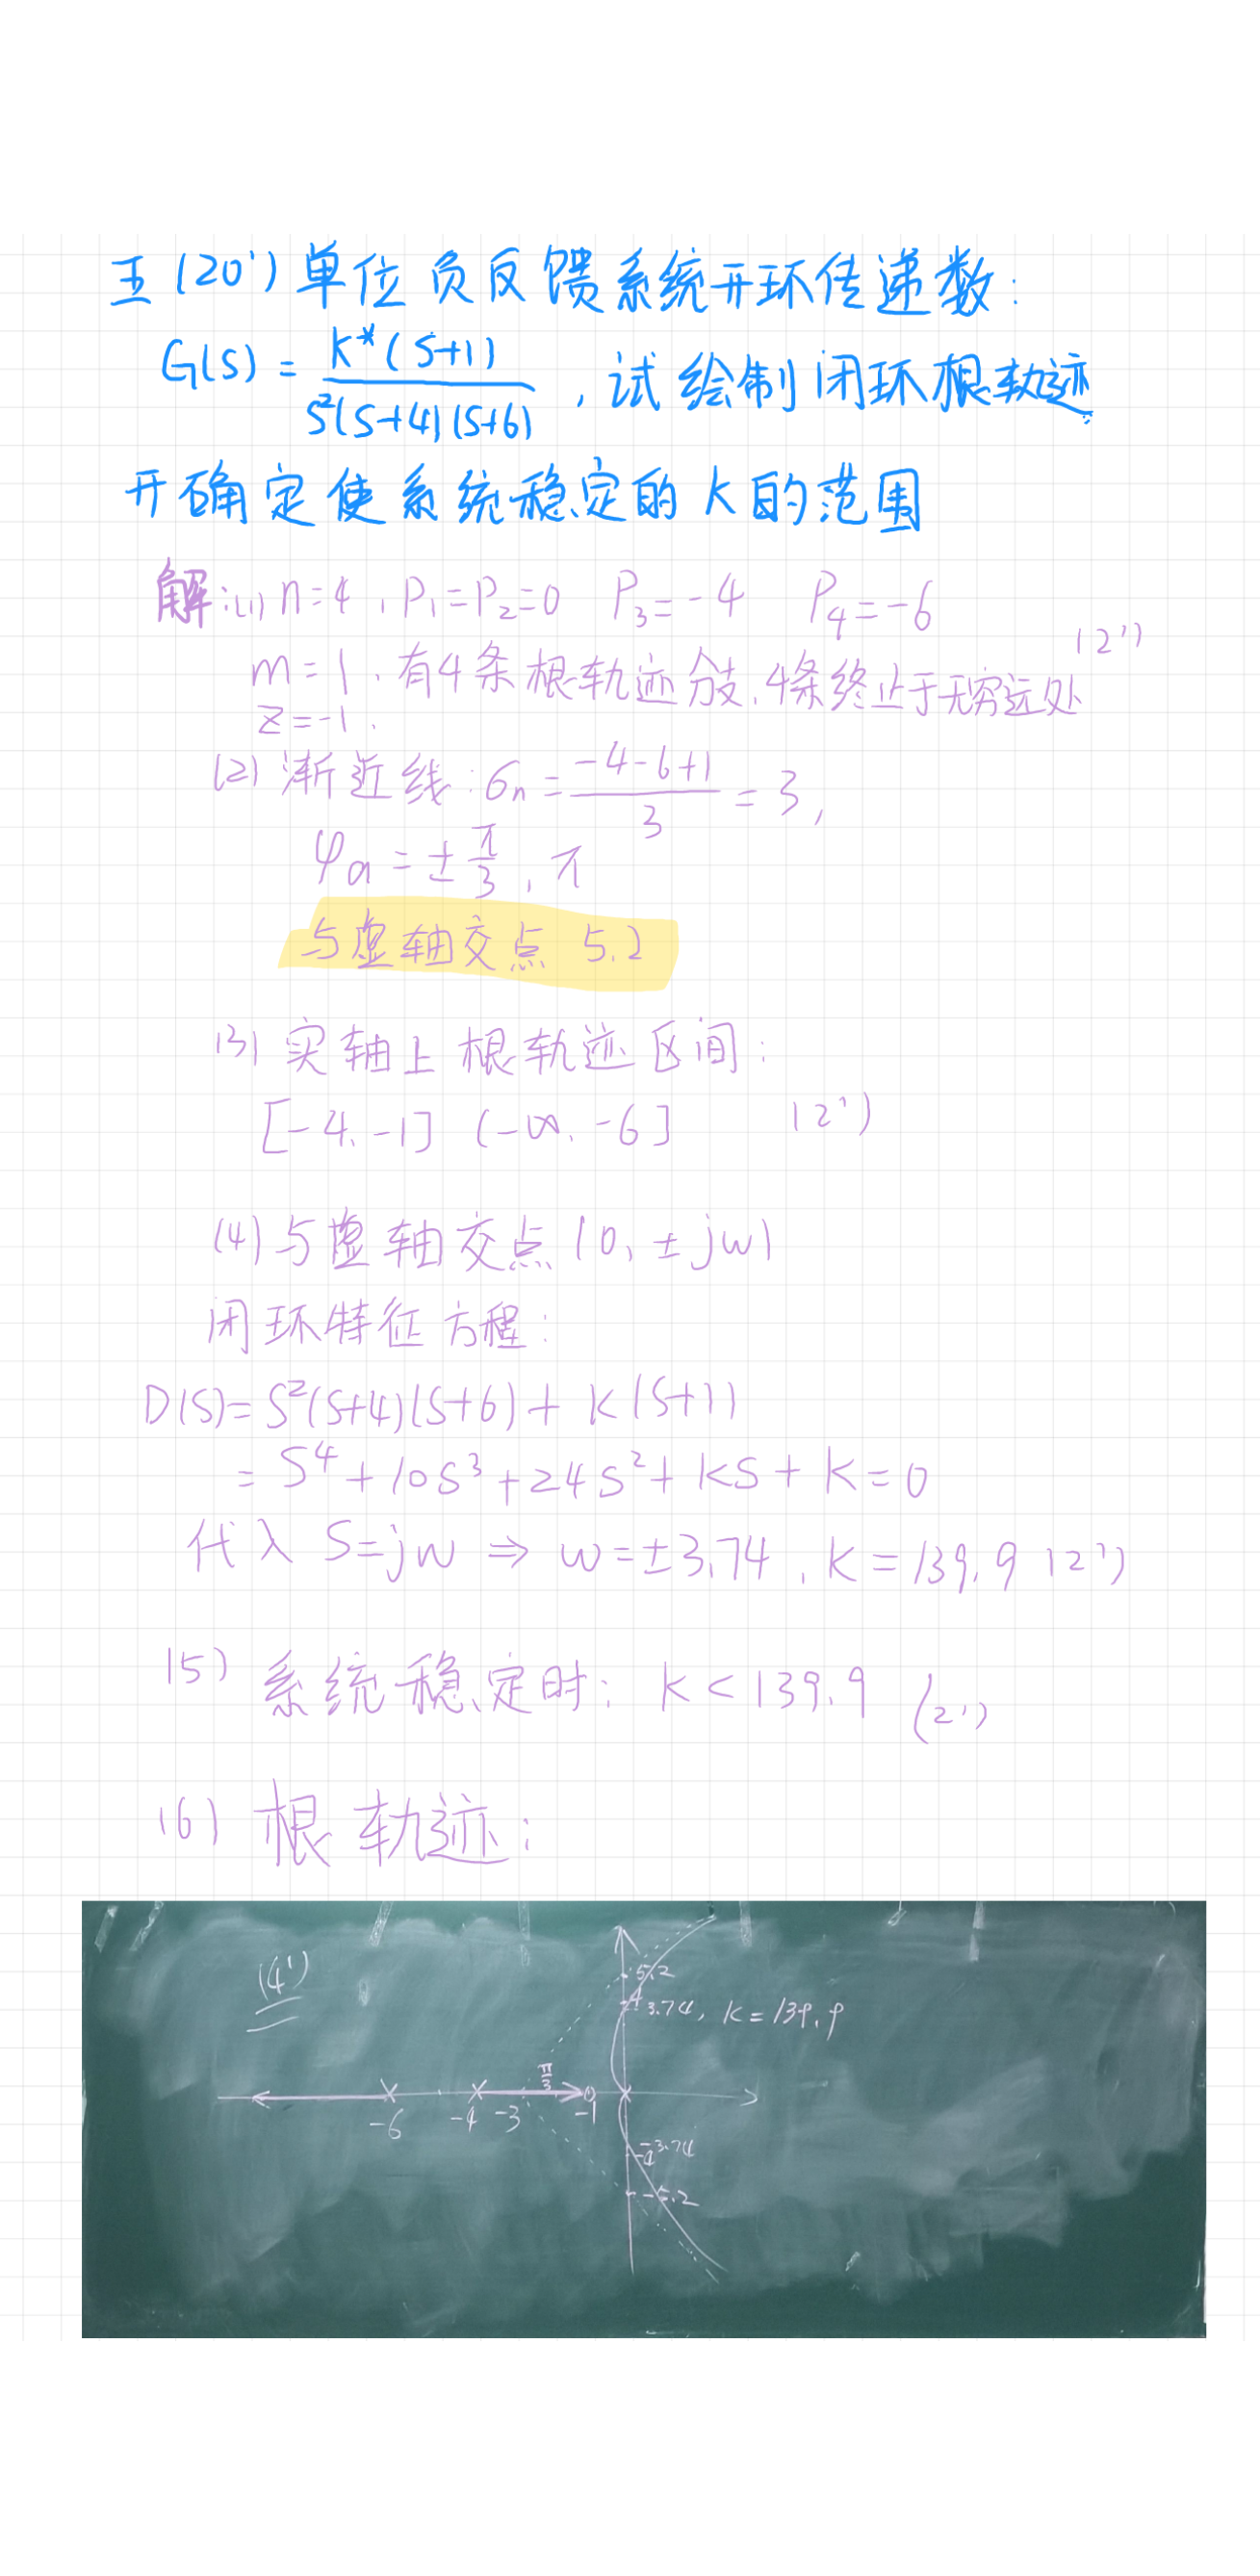 五 (20') 单位负反馈系统开环传递数:
G(s) = K*(S+1) / S²(S+4)(S+6) , 试绘制闭环根轨迹
并确定使系统稳定的K的范围
解:(1) n=4, P₁=P₂=0 P₃=-4 P₄=-6
(2')
m=1, 有4条根轨迹分支, 4条终止于无穷远处
z=-1,
(2) 渐近线: σn = (-4-6+1)/3 = 3,
φa = ± π/3, π
与虚轴交点 5.2
(3) 实轴上根轨迹区间:
[-4, -1] (-∞, -6] (2')
(4) 与虚轴交点 (0, ±jw)
闭环特征方程:
D(S) = S²(S+4)(S+6) + K(S+1)
= S⁴+10S³+24S²+KS+K=0
代入 S=jw ⇒ w=±3.74, K=139.9 (2')
(5) 系统稳定时: K<139.9 (2')
(6) 根轨迹:
(4')
5.2
3.74, K=139.9
π/3
-6 -4 -3 -1
-3.74
-5.2